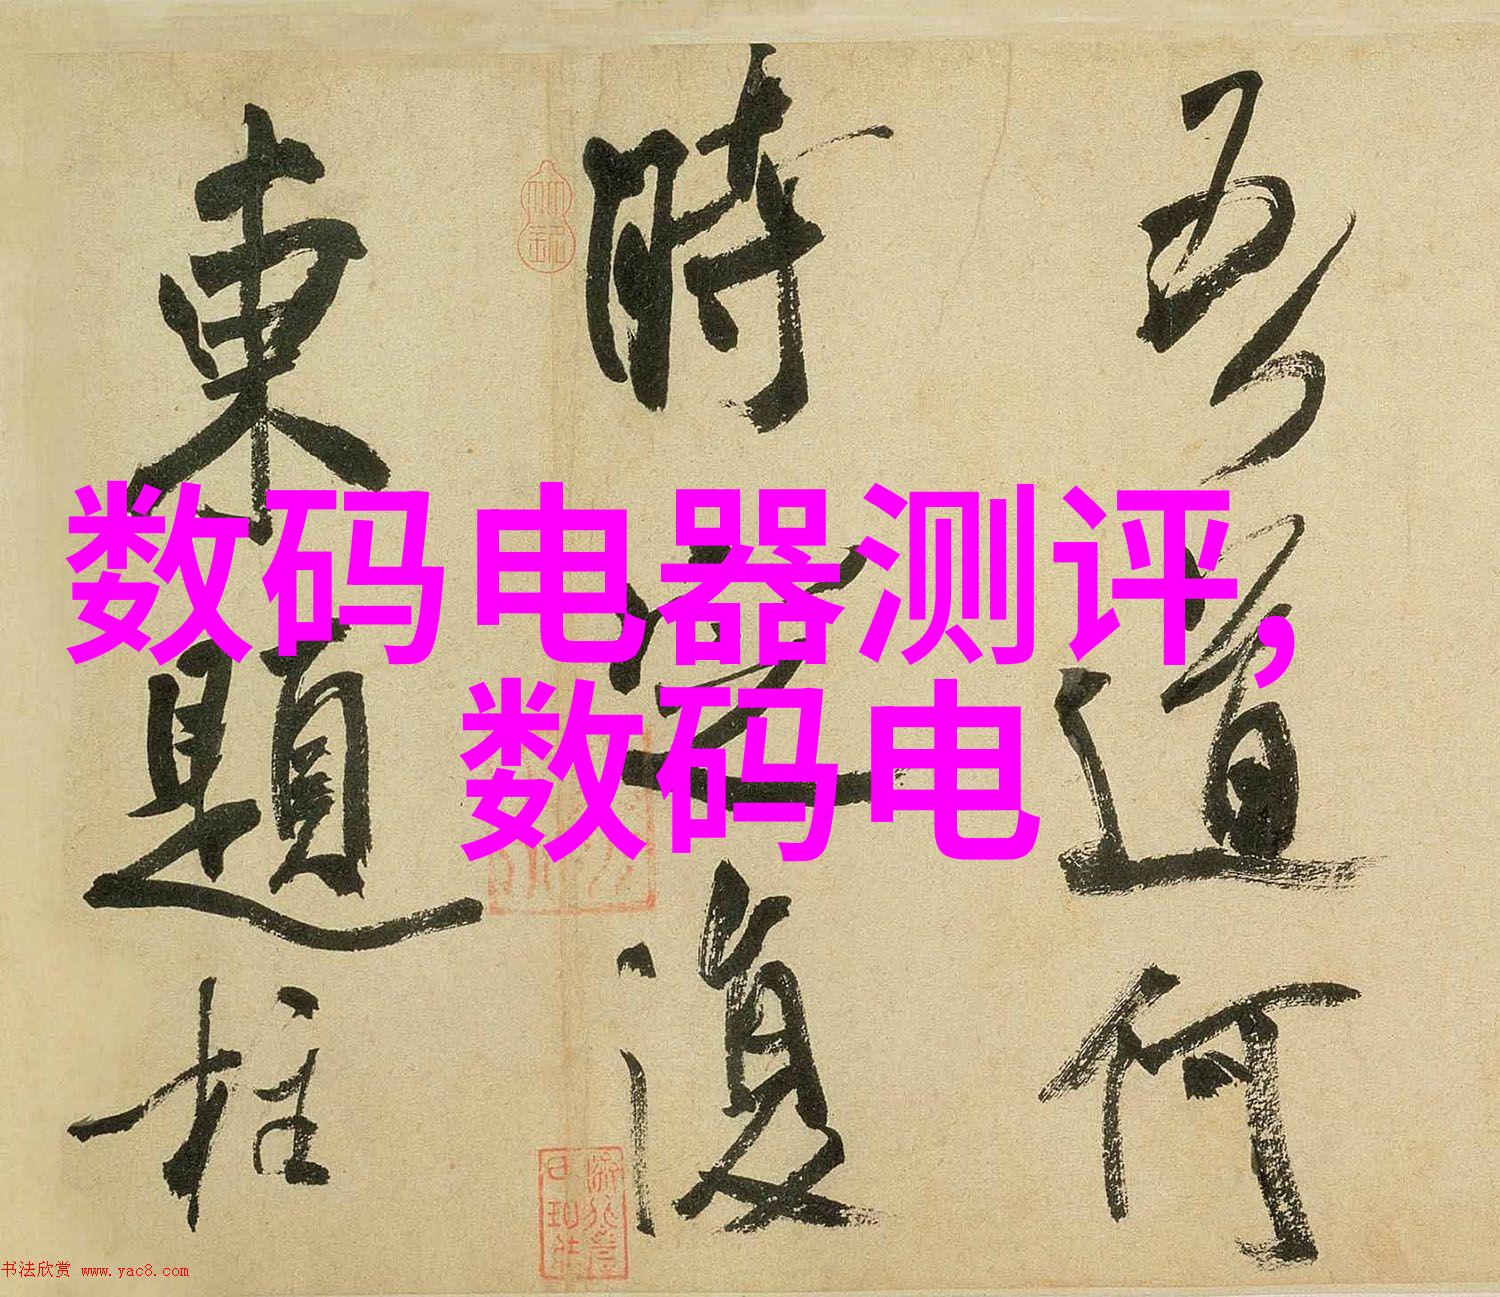 吾道何
時
復
東題柱
数码电器测评,
数码电
书法欣赏 www.yac8.com